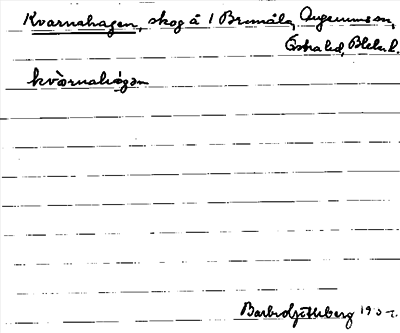 Kvarnahagen, skog å 1 Brunmåla, Augerums sn,
Östra hd, Blek. l.
kvàrnahàgan
Barbro Jutteberg 193